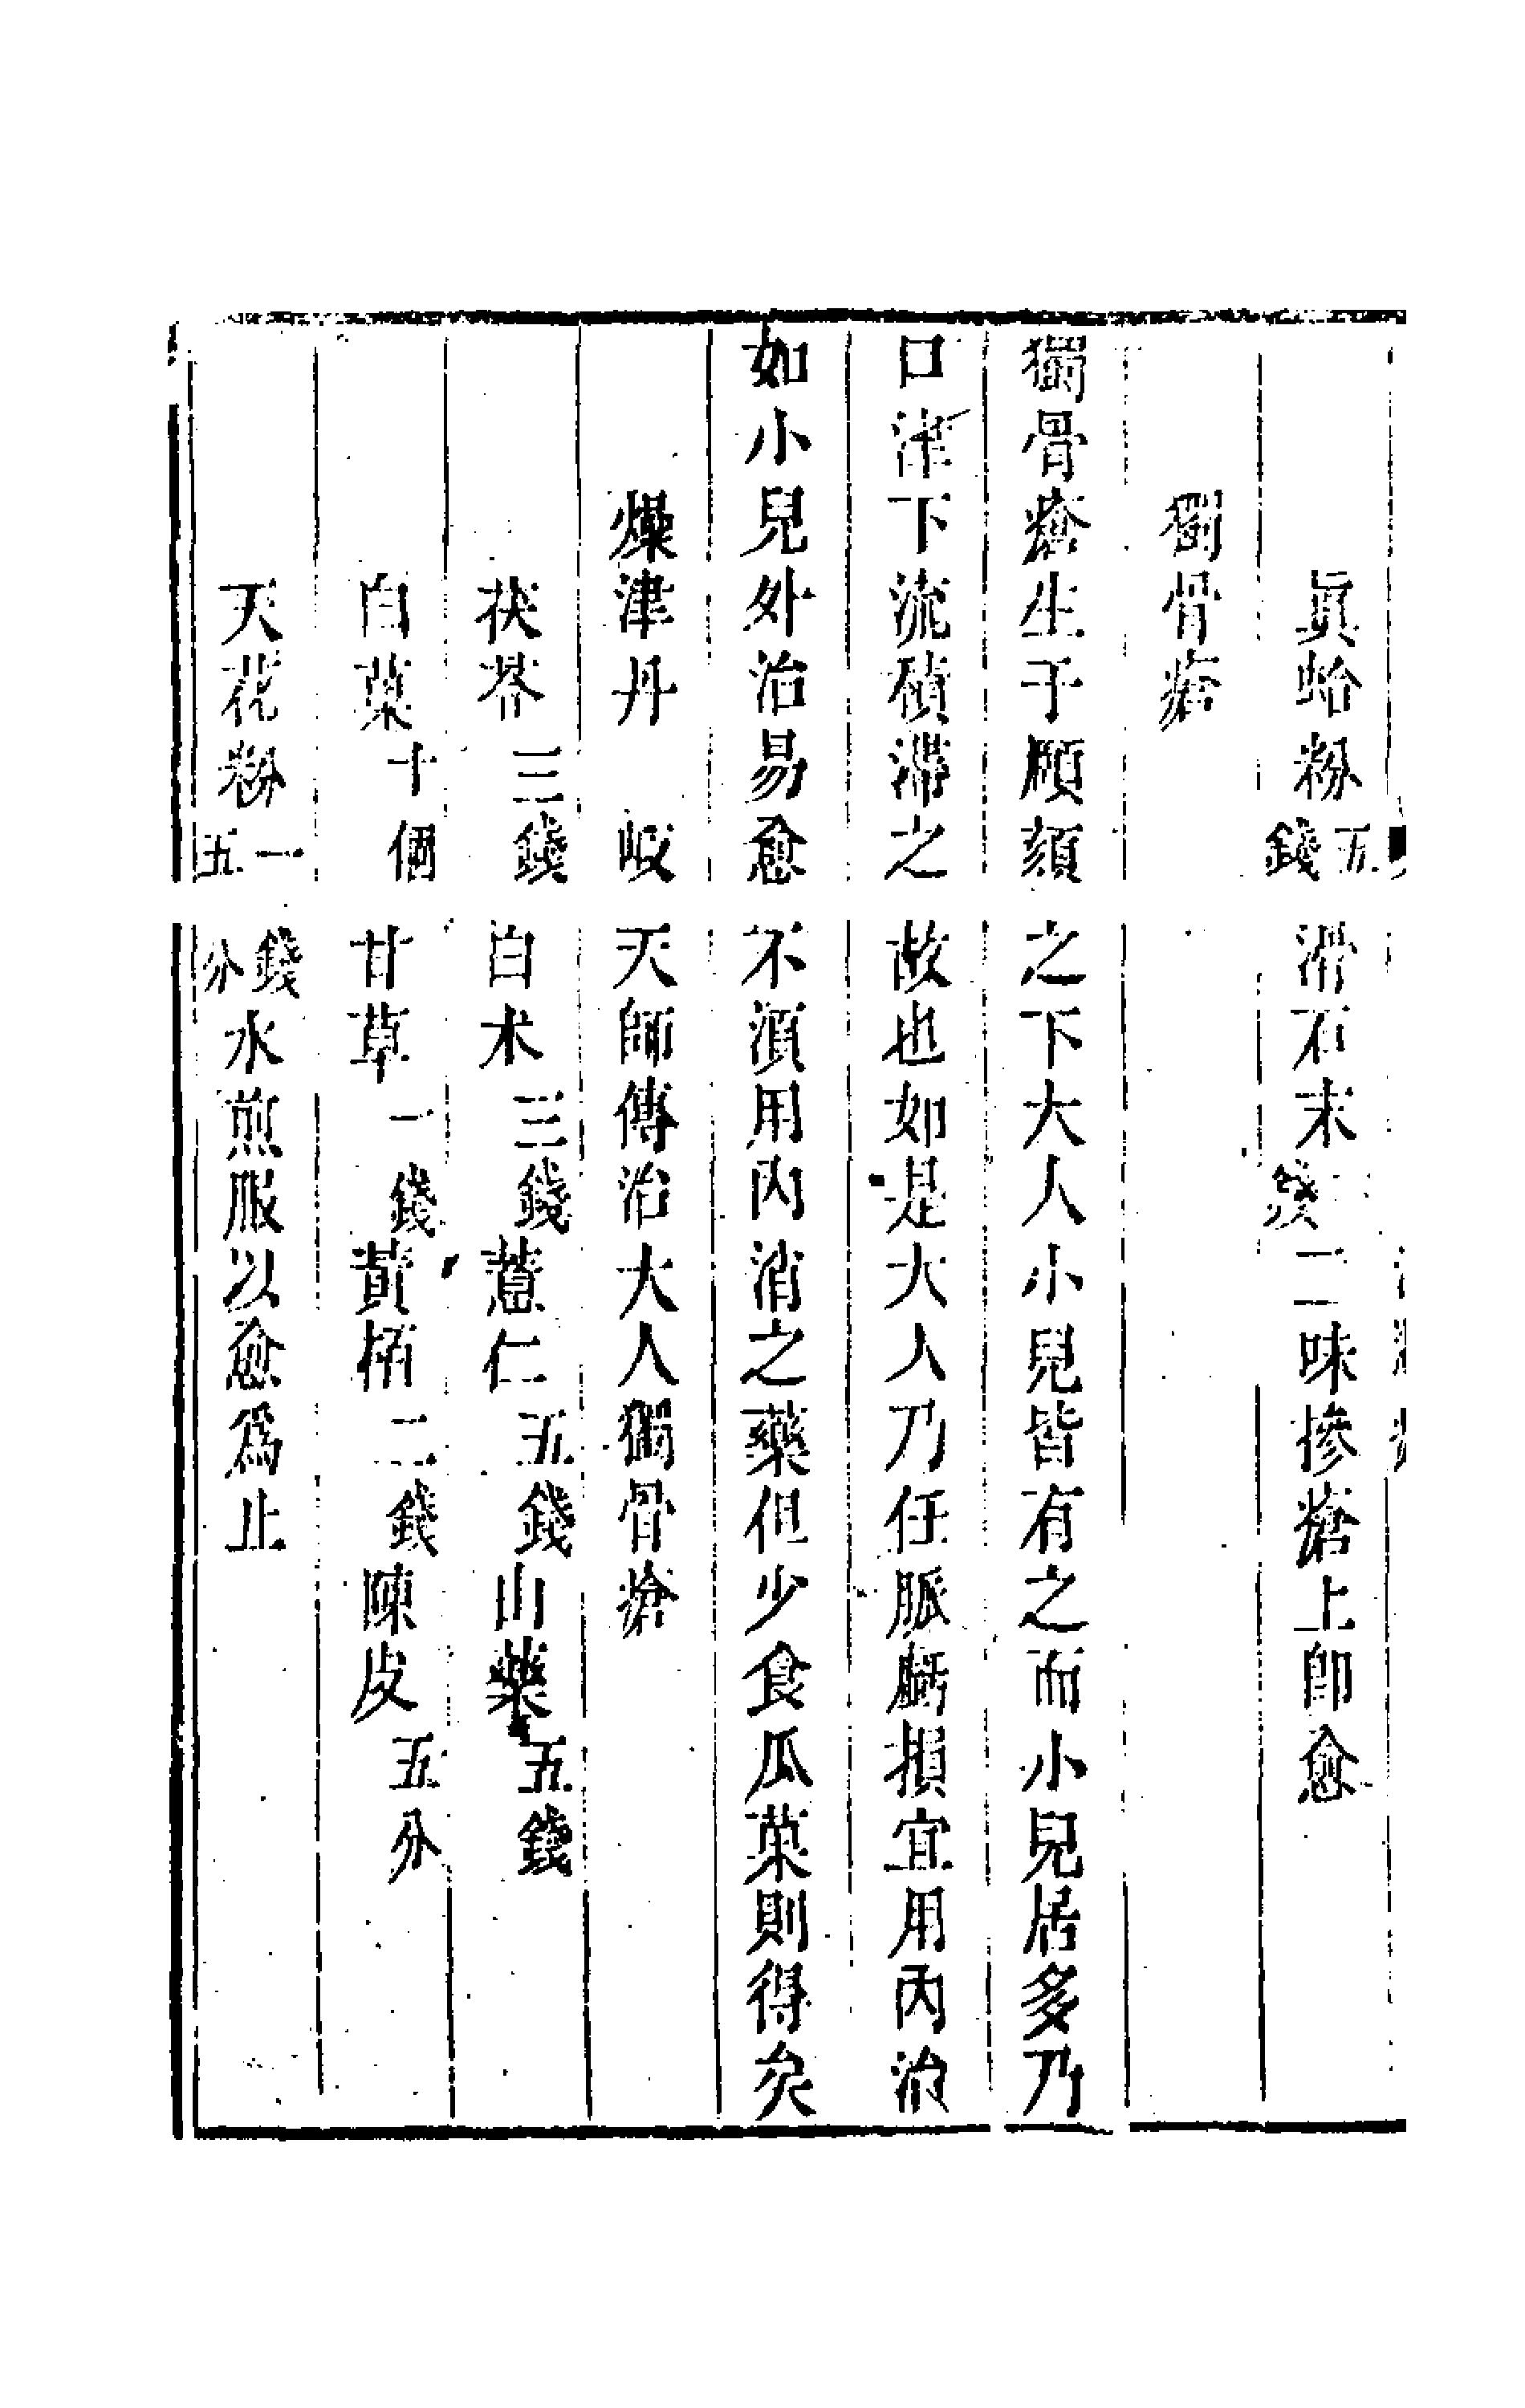 眞蛤粉五錢滑石末二錢二味摻瘡上卽愈
獨骨瘡
獨骨瘡生于頤頦之下大人小兒皆有之而小兒居多乃
口津下流積滯之故也如是大人乃任脈虧損宜用內治
如小兒外治易愈不須用內消之藥但少食瓜菓則得矣
燥津丹岐天師傳治大人獨骨瘡
茯苓三錢白朮三錢薏仁五錢山藥五錢
白菓十個甘草一錢黃栢二錢陳皮五分
天花粉一錢五分水煎服以愈爲止